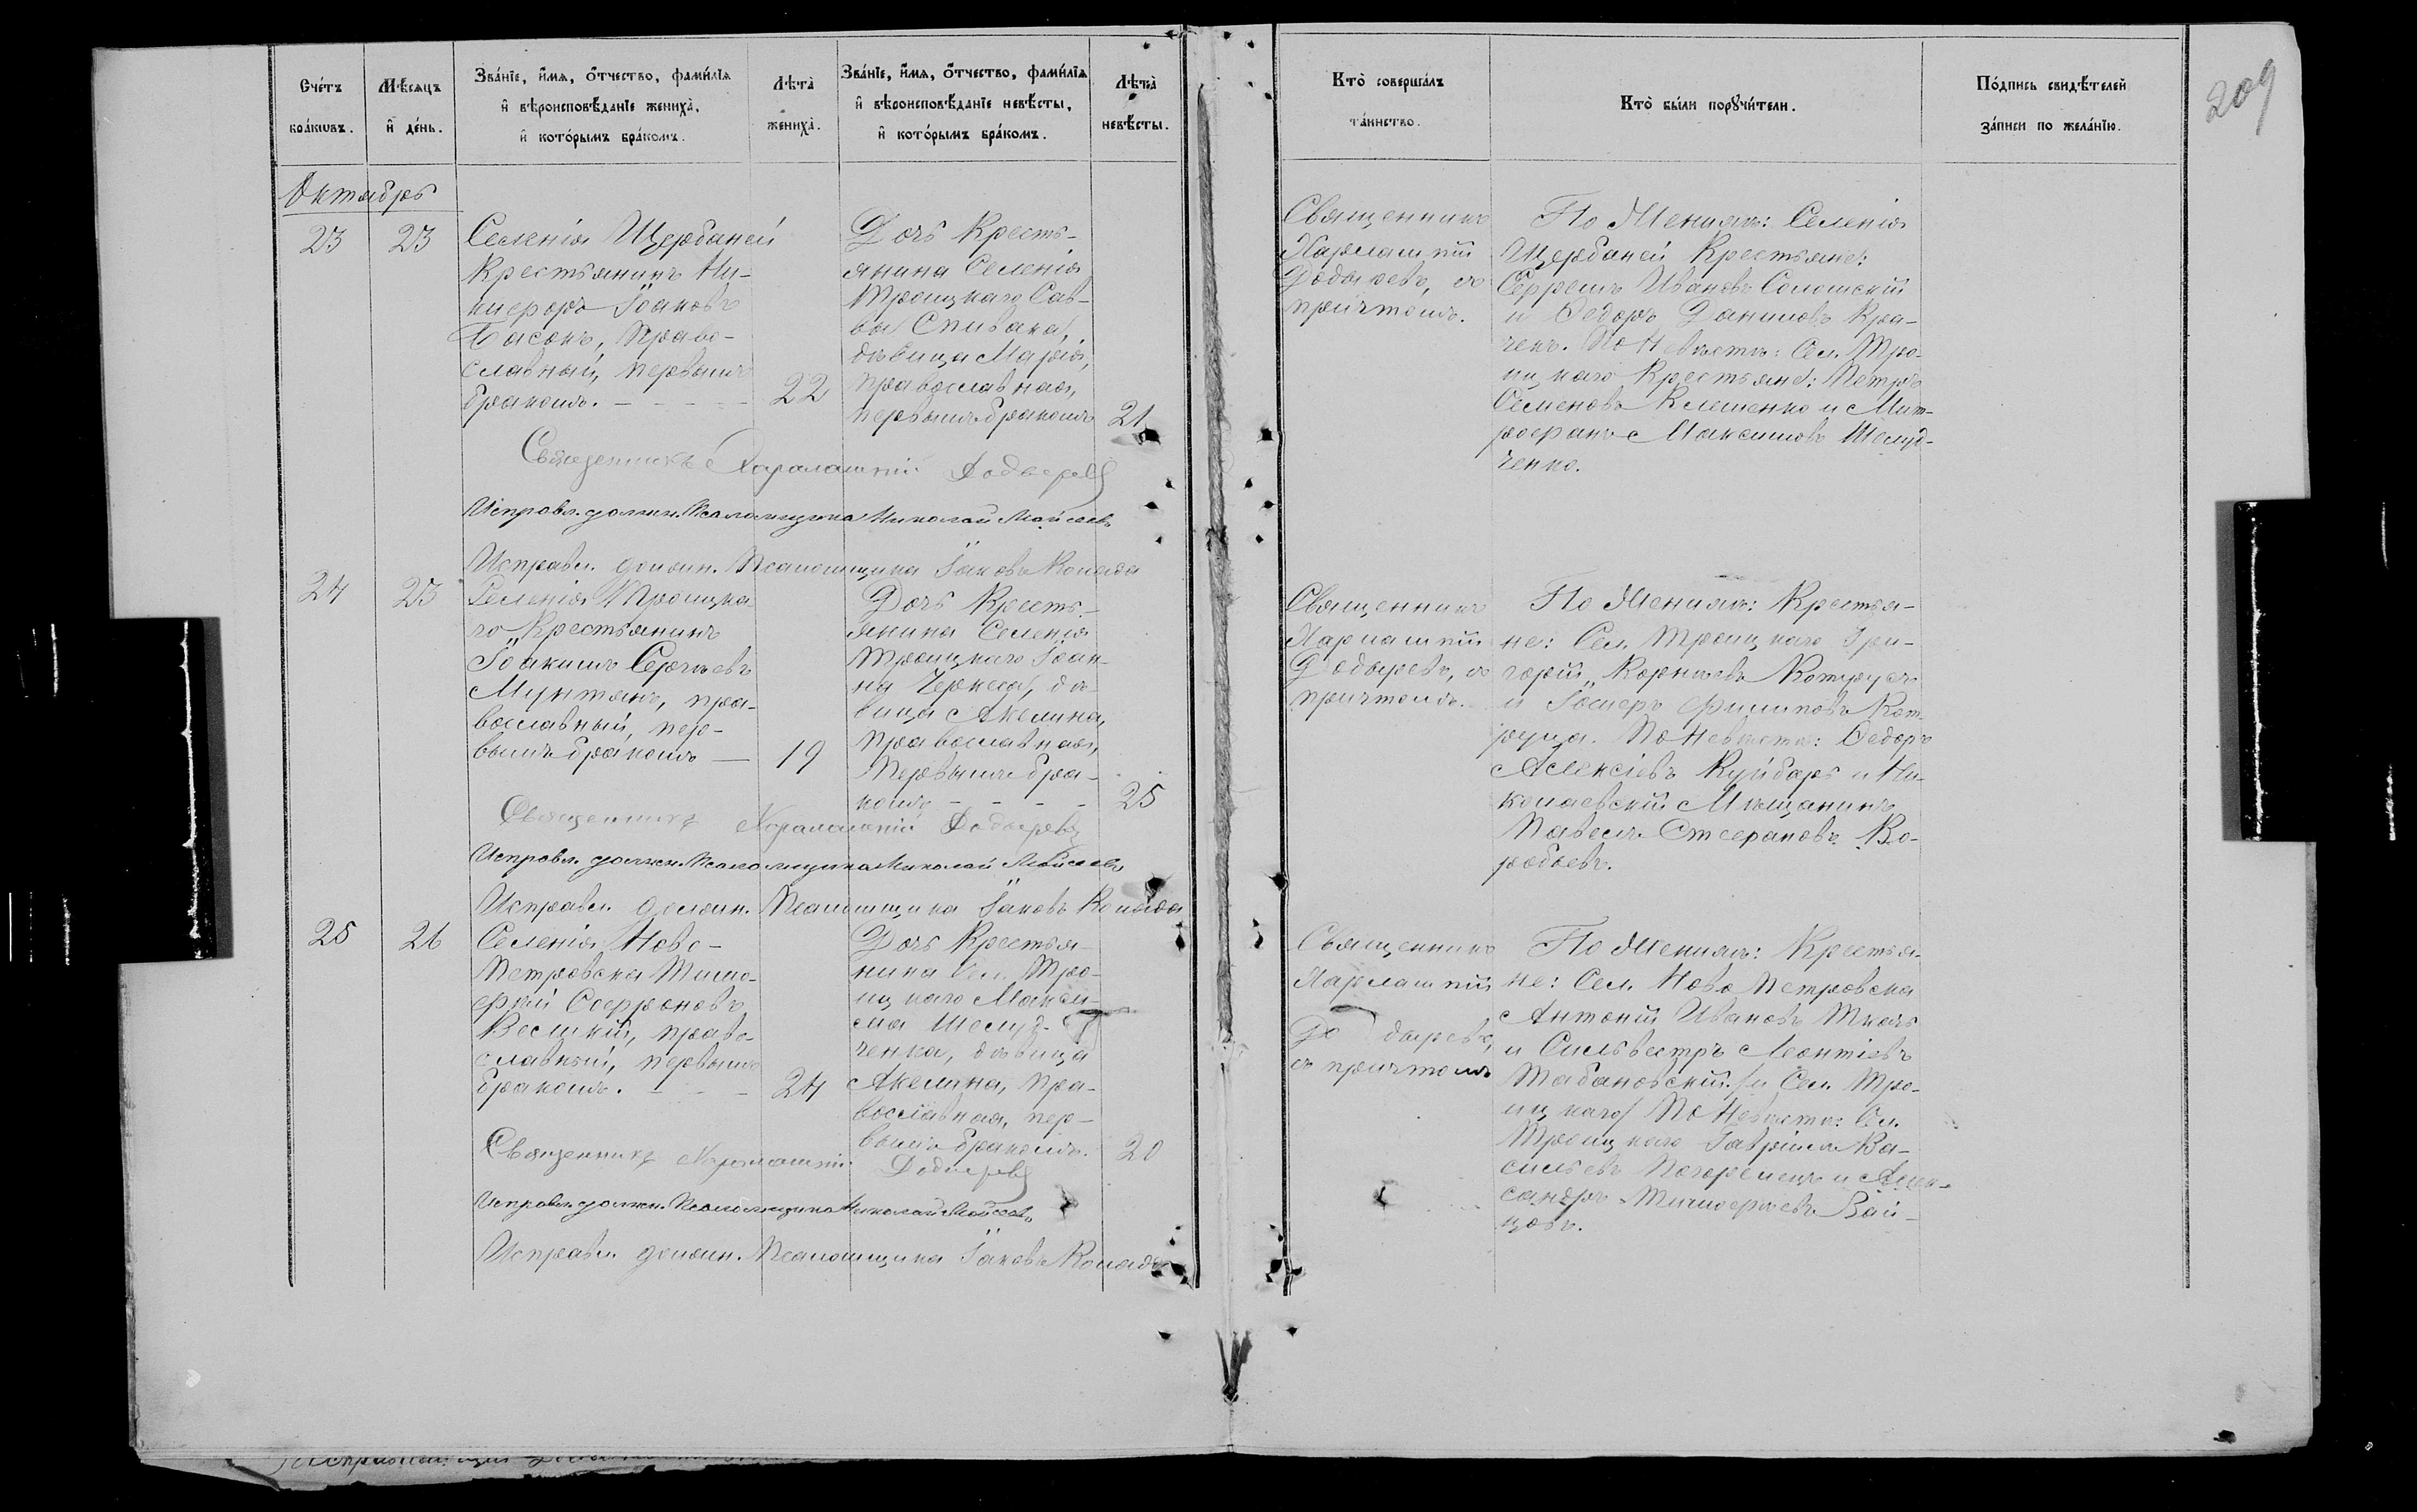 Счетъ браковъ.
Мѣсяцъ и день.
Званіе, имя, отчество, фамилія
и вѣроисповѣданіе жениха,
и которымъ бракомъ.
Лѣта жениха.
Званіе, имя, отчество, фамилія
и вѣроисповѣданіе невѣсты,
и которымъ бракомъ.
Лѣта невѣсты.
Кто совершалъ
таинство.
Кто были поручители.
Подпись свидѣтелей
записи по желанію.
209
Октябрь
23
23
Селенія Щербаней
Крестьянинъ Ни-
кифоръ Іоаковъ
Басокъ, Право-
славный, первымъ
бракомъ.
22
Дочь Кресть-
янина Селенія
Троицкаго Сав-
вы Спивака,
дѣвица Марія,
православная,
первымъ бракомъ
21
Священникъ
Харлампій
Додыревъ, съ
причтомъ.
По Женихѣ: Селенія
Щербаней Крестьяне:
Сергей Ивановъ Соломскій
и Ѳедоръ Даниловъ Кра-
ченъ. По Невѣстѣ: Сел. Тро-
ицкаго Крестьяне: Петръ
Семеновъ Клименко и Мит-
рофанъ Максимовъ Шелуд-
ченко.
Священникъ Харалампій Додыревъ
Исправл. должн. Псаломщика Николай Мойсеевъ
Исправл. должн. Псаломщика Іаковъ Колада
24
23
Селенія Троицка
го Крестьянинъ
Іоакимъ Сергѣевъ
Мунтянъ, пра-
вославный, пер-
вымъ бракомъ
19
Дочь Кресть-
янина Селенія
Троицкаго Іоан-
на Черкеса, дѣ-
вица Акелина,
Православная,
Первымъ бра-
комъ
25
Священникъ
Харлампій
Додыревъ, съ
причтомъ.
По Женихѣ: Крестья-
не: Сел. Троицкаго Гри-
горій Корнѣевъ Котруца
и Іосифъ Филиповъ Кот-
руца. По Невѣстѣ: Ѳедоръ
Алексіевъ Куйбаръ и Ни-
колаевскій Мѣщанинъ
Павелъ Стефановъ Во-
робьевъ.
Священникъ Харалампій Додыревъ
Исправл. должн. Псаломщика Николай Мойсеевъ
Исправл. должн. Псаломщика Іаковъ Колада
25
26
Селенія Ново-
Петровска Тимо-
фей Софроновъ
Великій, право-
славный, первымъ
бракомъ.
24
Дочь Крестья-
нина Сел. Тро-
ицкаго Макси-
ма Шелуд-
ченка, дѣвица
Акелина, пра-
вославная, пер-
вымъ бракомъ.
20
Священникъ
Харлампій
До дыревъ,
съ причтомъ
По Женихѣ: Крестья-
не: Сел. Ново Петровска
Антоній Ивановъ Ткачъ
и Сильвестръ Леонтіевъ
Табановскій /и Сел. Тро-
ицкаго/ По Невѣстѣ: Сел.
Троицкаго Гавріилъ Ва-
сильевъ Погорелецъ и Алек-
сандръ Тимофѣевъ Вай-
цовъ.
Священникъ Харалампій Додыревъ
Исправл. должн. Псаломщика Николай Мойсеевъ
Исправл. должн. Псаломщика Іаковъ Колада